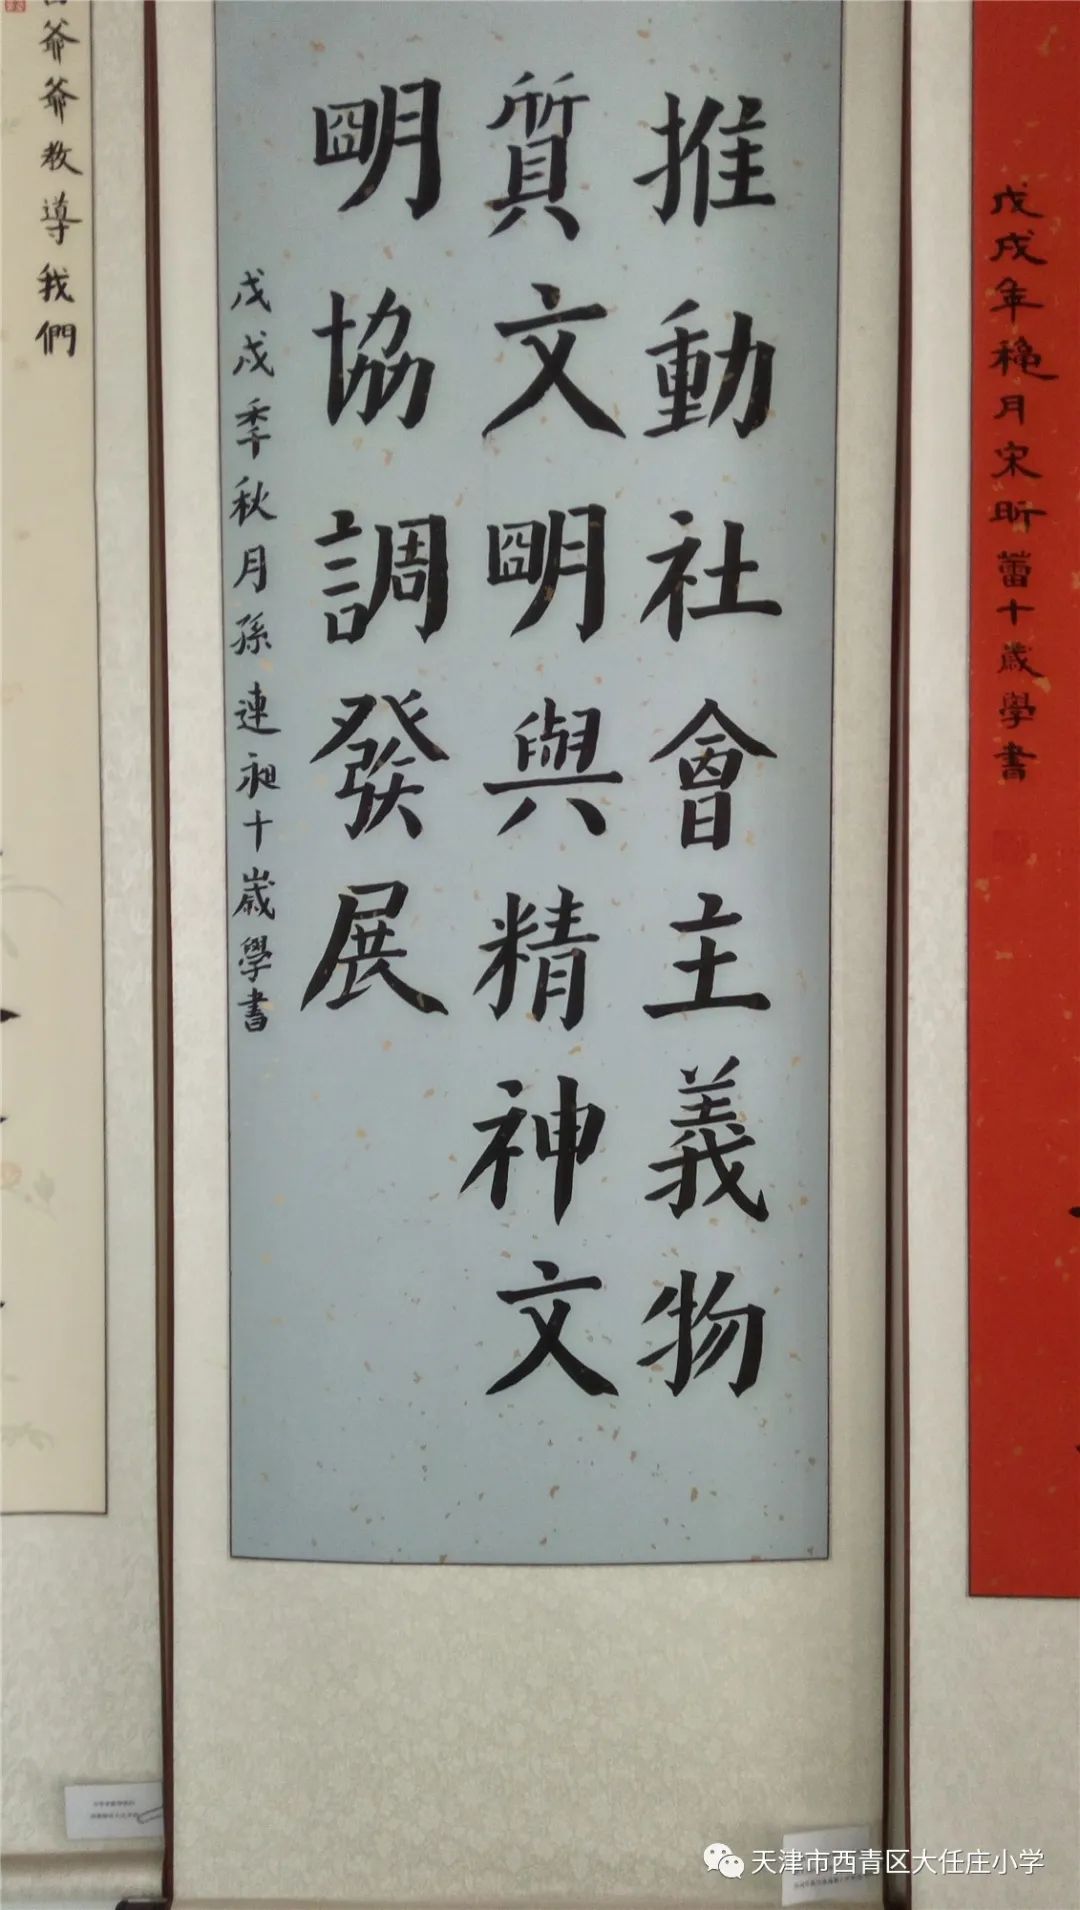 推動社會主義物
質文明與精神文
明協調發展
戊戌季秋月孫連昶十歲學書
戊戌年穐月宋昕蕾十歲學書
爺爺教導我們
天津市西青区大任庄小学